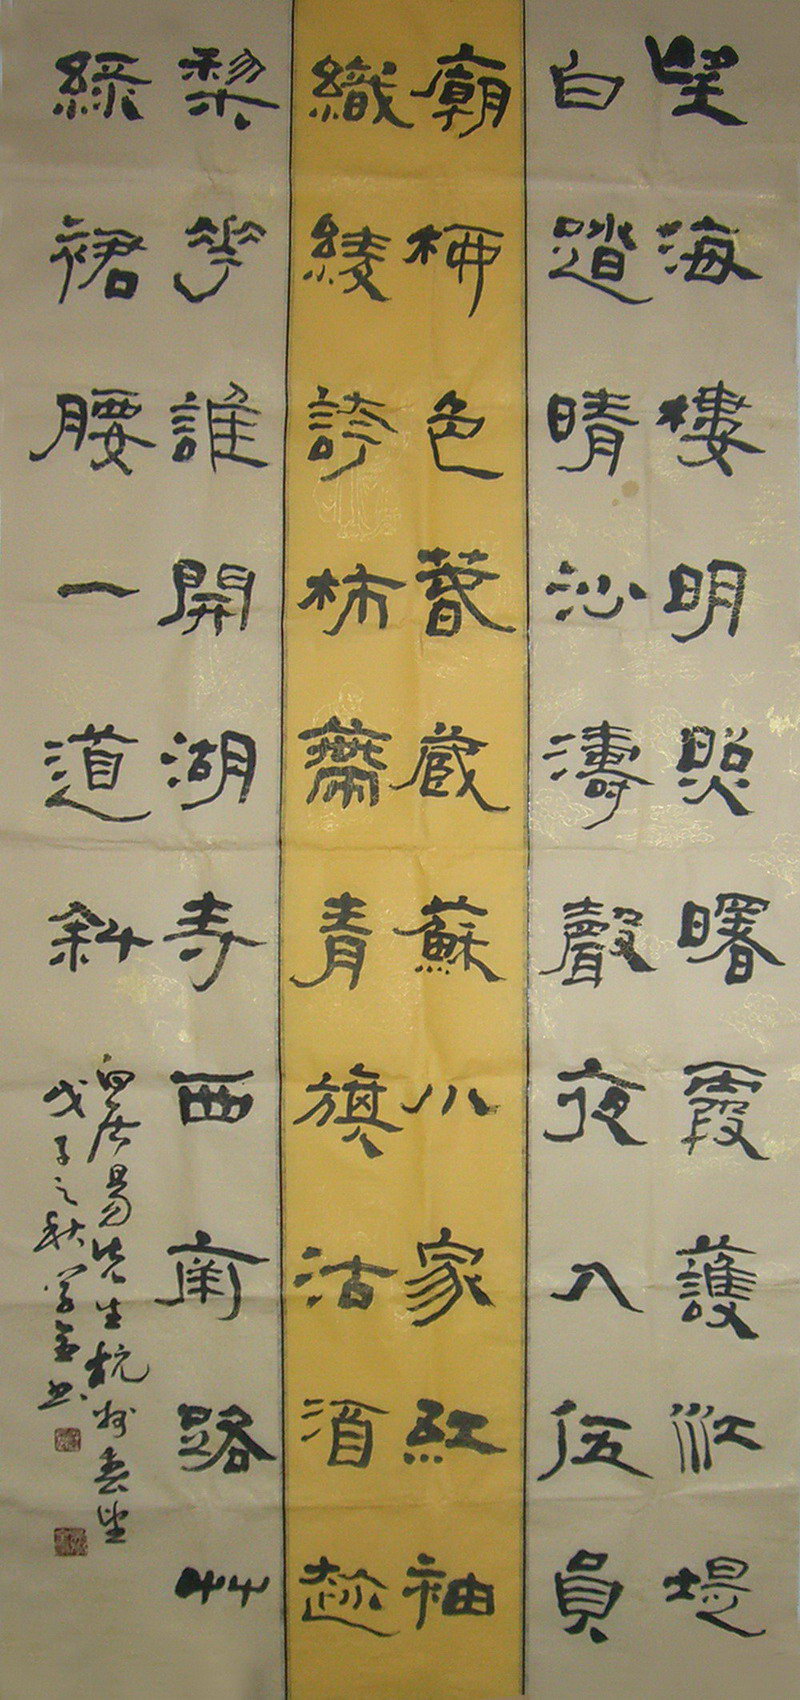 望海樓明照曙霞護江堤
白踏晴沙濤聲夜入伍員
廟柳色春藏蘇小家紅袖
織綾誇柿蔕青旗沽酒趁
梨花誰開湖寺西南路艸
綠裙腰一道斜
白居易先生杭州春望
戊子之秋学金书